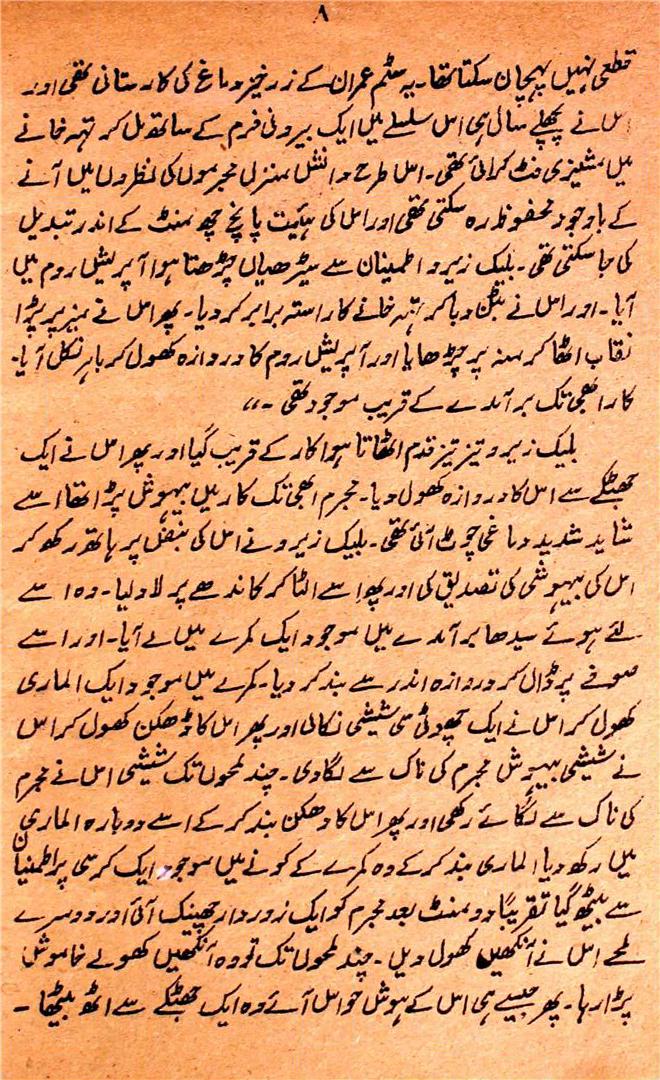 ۸
قطعی نہیں پہچان سکتا تھا۔ یہ سٹم عمران کے زرخیز دماغ کی کارستانی تھی اور
اس نے پچھلے سال ہی اس سلسلے میں ایک بیرونی فرم کے ساتھ مل کر تہہ خانے
میں مشینری فٹ کرائی تھی۔ اس طرح دانش منزل مجرموں کی نظروں میں آنے
کے باوجود محفوظ رہ سکتی تھی اور اس کی ہیئت پانچ چھ منٹ کے اندر تبدیل
کی جا سکتی تھی۔ بلیک زیرو اطمینان سے سیڑھیاں چڑھتا ہوا آپریشن روم میں
آیا۔ اور اس نے بٹن دبا کر تہہ خانے کا راستہ برابر کر دیا۔ پھر اس نے میز پر پڑا
نقاب اٹھا کر منہ پر چڑھایا اور آپریشن روم کا دروازہ کھول کر باہر نکل آیا۔
کار ابھی تک برآمدے کے قریب موجود تھی۔،،
بلیک زیرو تیز تیز قدم اٹھاتا ہوا کار کے قریب گیا اور پھر اس نے ایک
جھٹکے سے اس کا دروازہ کھول دیا۔ مجرم ابھی تک کار میں بیہوش پڑا تھا اسے
شاید شدید دماغی چوٹ آئی تھی۔ بلیک زیرو نے اس کی نبض پر ہاتھ رکھ کر
اس کی بیہوشی کی تصدیق کی اور پھر اسے اٹھا کر کاندھے پر لاد لیا۔ وہ اسے
لئے ہوئے سیدھا برآمدے میں موجود ایک کمرے میں لے آیا۔ اور اسے
صوفے پر ڈال کر دروازہ اندر سے بند کر دیا۔ کمرے میں موجود ایک الماری
کھول کر اس نے ایک چھوٹی سی شیشی نکالی اور پھر اس کا ڈھکن کھول کر اس
نے شیشی بیہوش مجرم کی ناک سے لگا دی۔ چند لمحوں تک شیشی اس نے مجرم
کی ناک سے لگائے رکھی اور پھر اس کا ڈھکن بند کر کے اسے دوبارہ الماری
میں رکھ دیا الماری بند کر کے وہ کمرے کے کونے میں موجود ایک کرسی پر اطمینان
سے بیٹھ گیا تقریباً دو منٹ بعد مجرم کو ایک زوردار چھینک آئی اور دوسرے
لمحے اس نے آنکھیں کھول دیں۔ چند لمحوں تک تو وہ آنکھیں کھولے خاموش
پڑا رہا۔ پھر جیسے ہی اس کے ہوش حواس آئے وہ ایک جھٹکے سے اٹھ بیٹھا۔